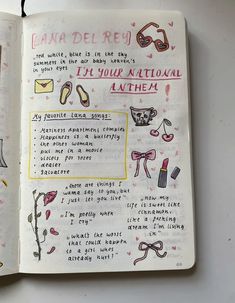 [LANA DEL REY]
red white, blue is in the sky
summers in the air baby heaven's
in your eyes
I'M YOUR NATIONAL
ANTHEM
My favorite Lana songs:
• Mariners Apartment complex
• Happiness is a butterfly
• the other woman
• put me in a movie
• violets for roses
• dealer
• Salvatore
"there are things I
wanna say to you, but
I just let you live"
"I'm pretty when
I cry"
"what's the worst
that could happen
to a girl whos
already hurt?"
"now my
life is sweet like
cinnamon,
like a
dream I'm living
in"